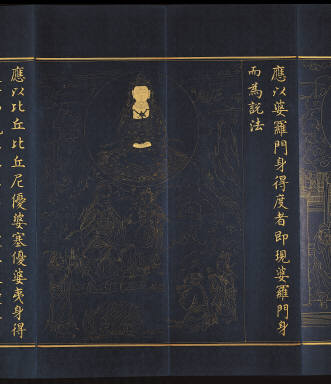 應以婆羅門身得度者即現婆羅門身
而為説法
應以比丘比丘尼優婆塞優婆夷身得